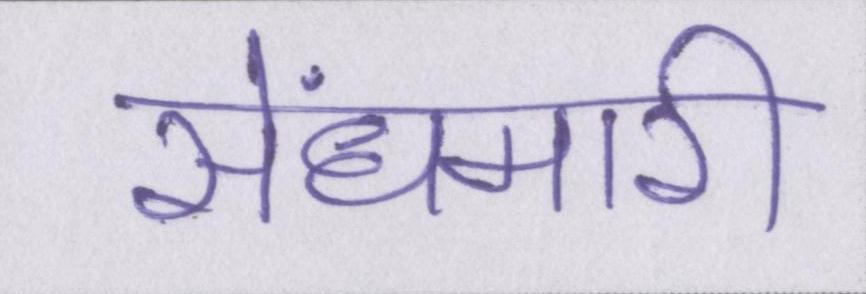 सेंधमारी